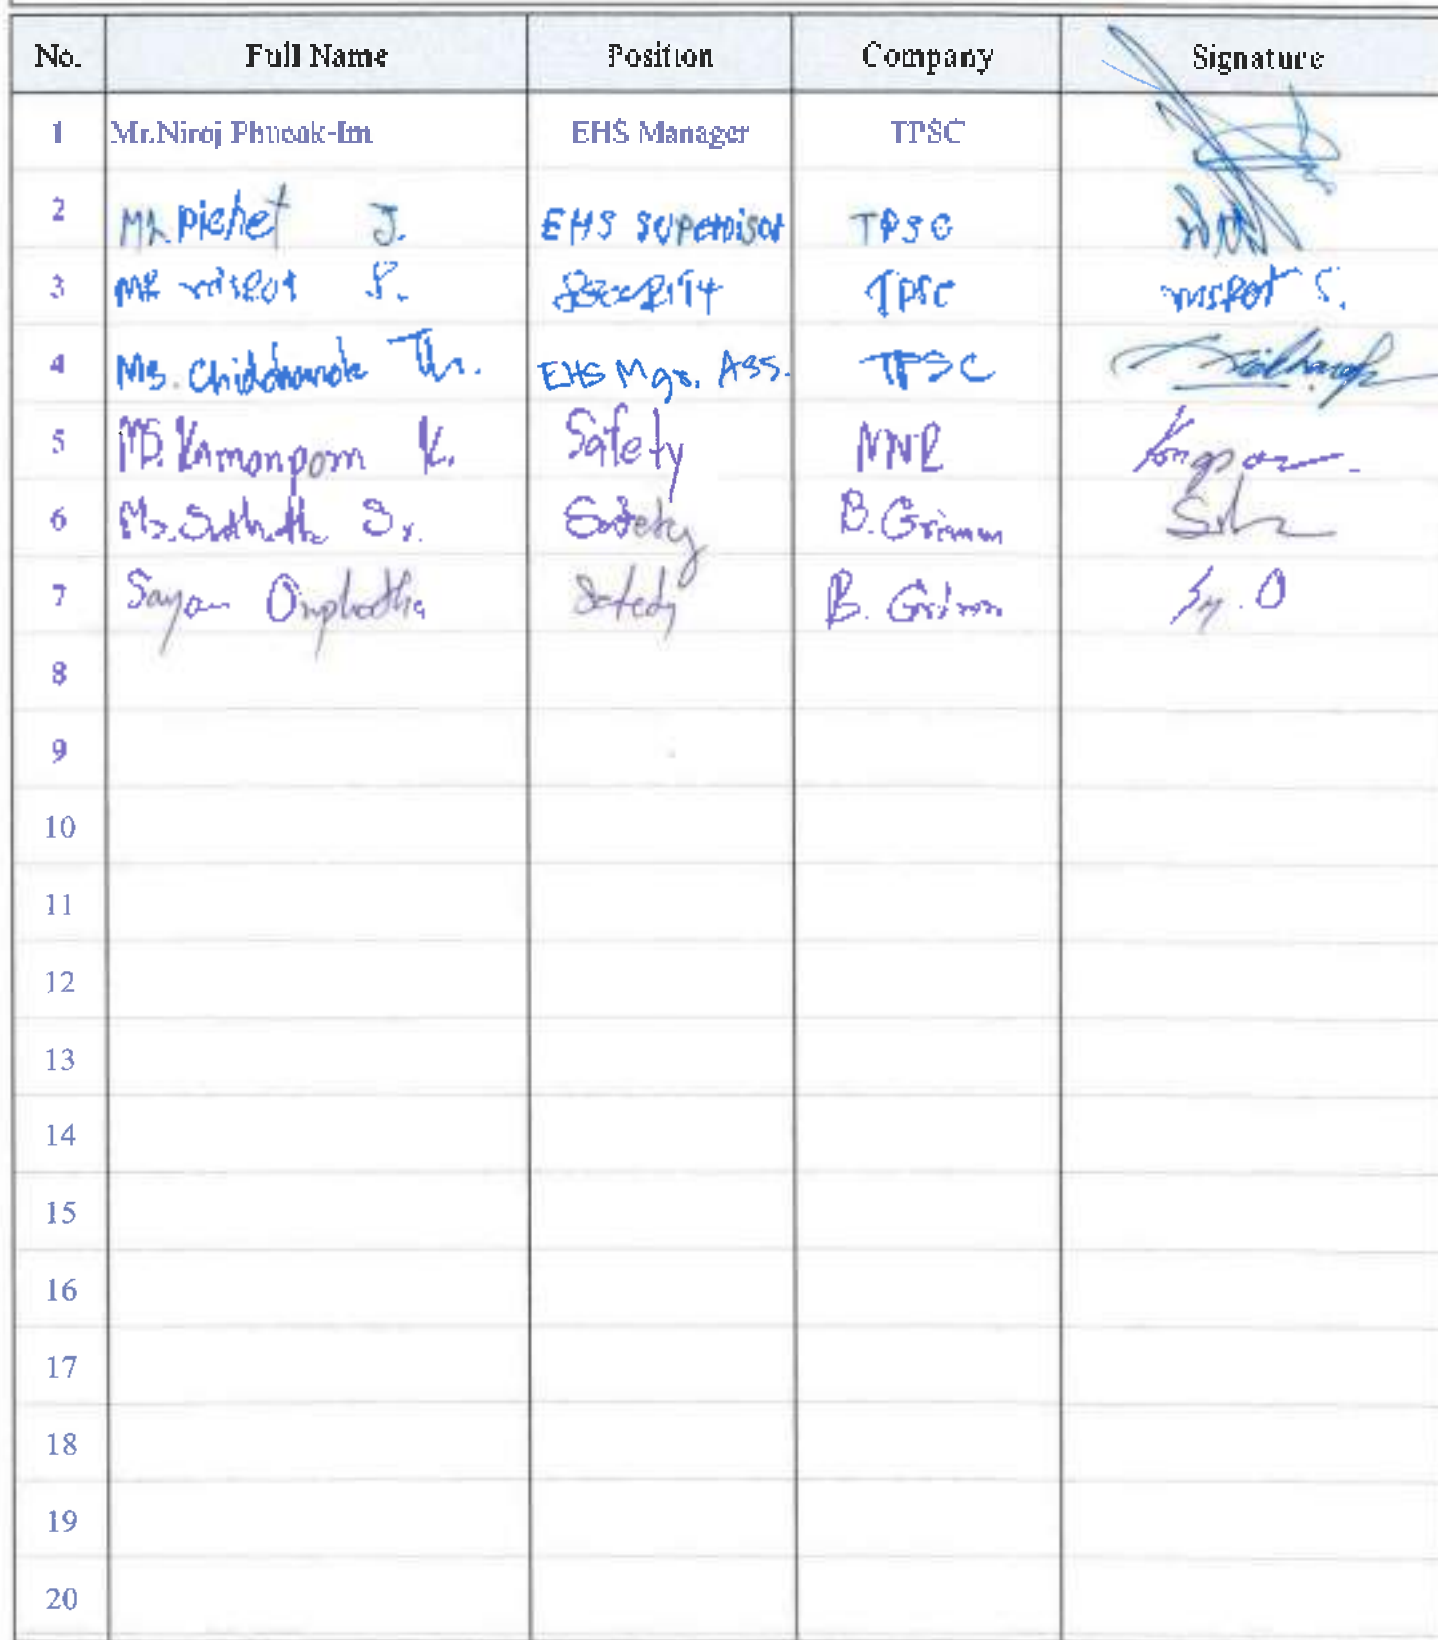 No. Full Name Position Company Signature
1 Mr.Niroj Phueak-Im EHS Manager TPSC
2 Mr. Pichet J. EHS Supervisor TPSC
3 Mr J. TPSC
4 Ms. Chidchanok Th. EHS Mgr. Ass. TPSC
5 MS. Kamonporn K. Safety NNR
6 Ms. Safety B. Grimm
7 Sayan Safety B. Grimm Sy. O
8
9
10
11
12
13
14
15
16
17
18
19
20